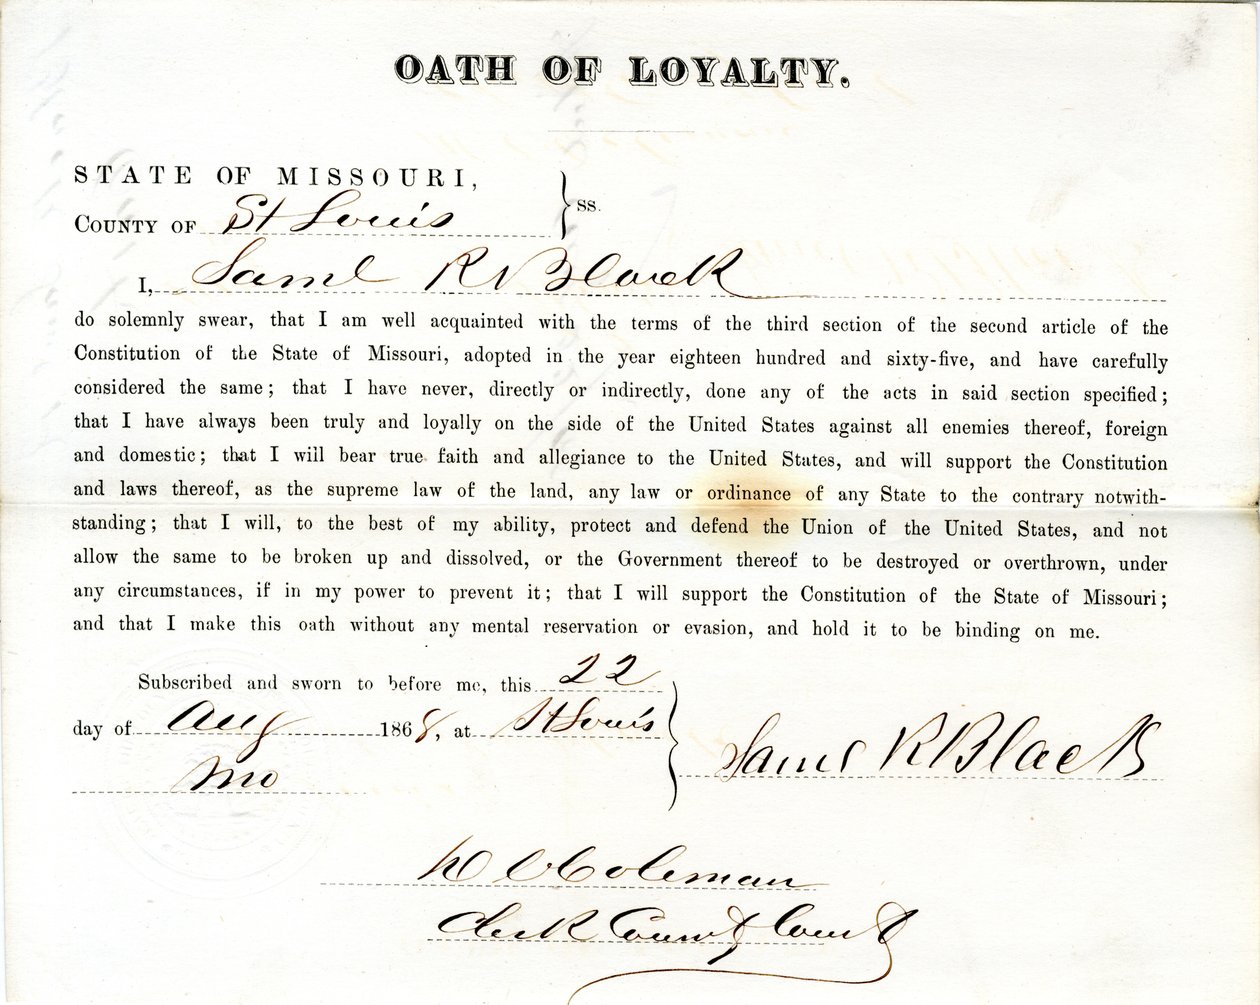 OATH OF LOYALTY.
STATE OF MISSOURI,
COUNTY OF St Louis } ss.
I, Saml R Black
do solemnly swear, that I am well acquainted with the terms of the third section of the second article of the
Constitution of the State of Missouri, adopted in the year eighteen hundred and sixty-five, and have carefully
considered the same; that I have never, directly or indirectly, done any of the acts in said section specified;
that I have always been truly and loyally on the side of the United States against all enemies thereof, foreign
and domestic; that I will bear true faith and allegiance to the United States, and will support the Constitution
and laws thereof, as the supreme law of the land, any law or ordinance of any State to the contrary notwith-
standing; that I will, to the best of my ability, protect and defend the Union of the United States, and not
allow the same to be broken up and dissolved, or the Government thereof to be destroyed or overthrown, under
any circumstances, if in my power to prevent it; that I will support the Constitution of the State of Missouri;
and that I make this oath without any mental reservation or evasion, and hold it to be binding on me.
Subscribed and sworn to before me, this 22
day of Aug 1868, at St Louis
Mo
Saml R Black
Coleman
Clerk County Court